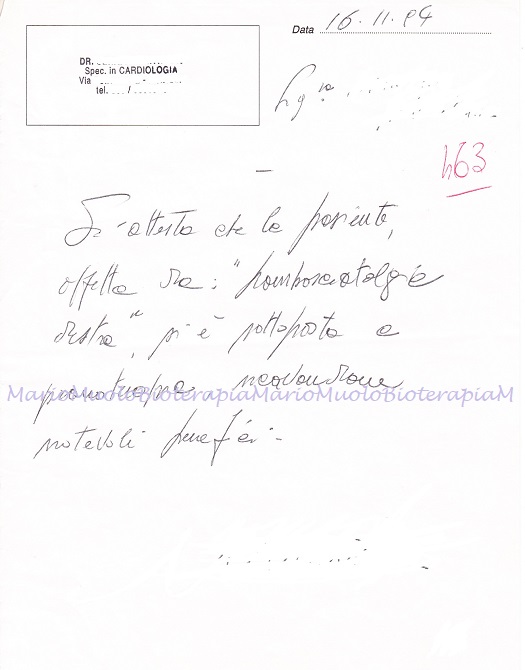 Data 16.11.94
DR.
Spec. in CARDIOLOGIA
Via
tel. /
Sig.ra
463
Si attesta che la paziente,
affetta da: "lombosciatalgia
destra", si è sottoposta a
pranoterapia ricavandone
MarioMuoloBioterapiaMarioMuoloBioterapiaM
notevoli benefici.